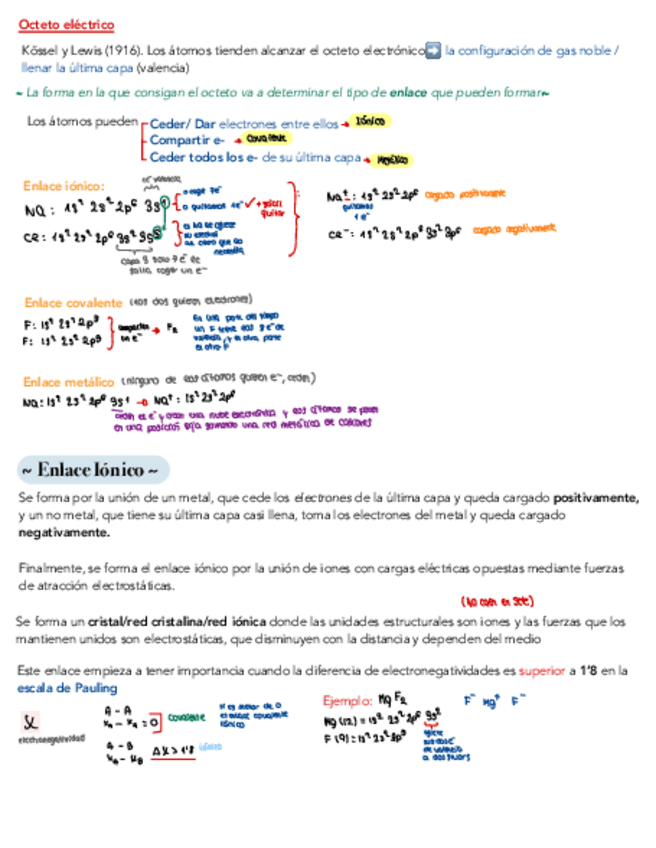 Octeto eléctrico
Kössel y Lewis (1916). Los átomos tienden alcanzar el octeto electrónico➡ la configuración de gas noble /
llenar la última capa (valencia)
~ La forma en la que consigan el octeto va a determinar el tipo de enlace que pueden formar~
Los átomos pueden
Ceder/ Dar electrones entre ellos → Iónico
Compartir e- → Covalente
Ceder todos los e- de su última capa → Metálico
Enlace iónico:
e- valencia
Na: 1s² 2s² 2p⁶ 3s¹
o coge 7e-
o quitamos 1e- ✓
quitar
Cl: 1s² 2s² 2p⁶ 3s² 3p⁵
capa 3 solo 7e- le
falta coger un e-
Na⁺: 1s² 2s² 2p⁶ cargado positivamente
quitamos
1 e-
Cl⁻: 1s² 2s² 2p⁶ 3s² 3p⁶ cargado negativamente
Enlace covalente (los dos quieren electrones)
F: 1s² 2s² 2p⁵
F: 1s² 2s² 2p⁵
comparten
un e- → F₂
Enlace metálico (ninguno de los átomos quieren e-, ceden)
Na: 1s² 2s² 2p⁶ 3s¹ → Na⁺: 1s² 2s² 2p⁶
ceden el e- y crean una nube electrónica y los átomos se ponen
en una posición fija formando una red metálica de cationes
~ Enlace Iónico ~
Se forma por la unión de un metal, que cede los electrones de la última capa y queda cargado positivamente,
y un no metal, que tiene su última capa casi llena, toma los electrones del metal y queda cargado
negativamente.
Finalmente, se forma el enlace iónico por la unión de iones con cargas eléctricas opuestas mediante fuerzas
de atracción electrostáticas.
Se forma un cristal/red cristalina/red iónica donde las unidades estructurales son iones y las fuerzas que los
mantienen unidos son electrostáticas, que disminuyen con la distancia y dependen del medio
Este enlace empieza a tener importancia cuando la diferencia de electronegatividades es superior a 1'8 en la
escala de Pauling
electronegatividad
A - A
covalente
A - B
Δx > 1'8 iónico
Ejemplo: Mg F₂
F⁻ Mg⁺ F⁻
Mg (12) = 1s² 2s² 2p⁶ 3s²
F (9) = 1s² 2s² 2p⁵